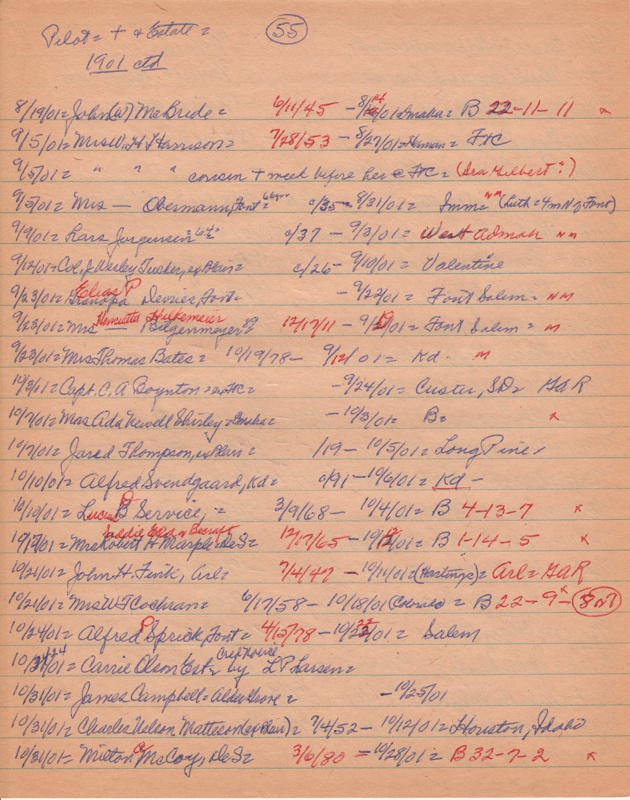 Pilot = + & Estate = 55
1901 ctd
8/19/01 = John (W) McBride = 6/11/45 - 8/14/01 Omaha = B 22-11-11 x
9/5/01 = Mrs W. H. Harrison = 7/28/53 - 8/27/01 = Herman = FtC
9/5/01 = " " " cousin + week before her @ FtC = (Ira Gilbert?)
9/5/01 = Mrs — Obermann, Font = 66 yr = c/35 - 8/31/01 = Imm = NM (Luth = 4m N of Font)
9/9/01 = Lars Jorgensen = 64 = c/37 - 9/3/01 = West Admah NM
9/12/01 = Col. J. Wesley Tucker, ex Blair = c/26 - 9/10/01 = Valentine
9/23/01 = Elias P Devrier, Font = - 9/22/01 = Font Salem = NM
9/23/01 = Mrs Henrietta Hilkemeier Bilgenmeyer 89 = 12/17/11 - 9/19/01 = Font Salem = M
9/23/01 = Mrs Thomas Bates = 10/19/78 - 9/12/01 = Kd. M
10/3/01 = Capt. C. A Boynton = ex FtC = - 9/24/01 = Custer, SD = GAR
10/7/01 = Mrs Ada Newell Shirley = Omaha = - 10/3/01 = B = x
10/7/01 = Jared Thompson, ex Blair = /19 - 10/5/01 = Long Pine
10/10/01 = Alfred Svendgaard, Kd = c/91 - 10/6/01 = Kd -
10/10/01 = Lucius B Service, = 3/9/68 - 10/4/01 = B 4-13-7 x
10/17/01 = Mrs Robert H Marple = DeS = 12/17/65 - 10/12/01 = B 1-14-5 x
10/21/01 = John H. Fink, Arl = 7/4/47 - 10/11/01 = (Hastings) = Arl = GAR
10/21/01 = Mrs W T Cochran = 6/17/58 - 10/18/01 Colorado = B 22-9 x - 8 or 7
10/24/01 = Alfred P Sprick, Font = 4/15/78 - 10/22/01 = Salem
10/24/01 = Carrie Olson Est = Crep Notice by L P Larsen =
10/31/01 = James Campbell = Alder Grove = - 10/25/01
10/31/01 = Charles Nelson Matteson (ex Blair) = 7/4/52 - 10/12/01 = Houston, Idaho
10/31/01 = Milton McCoy, DeS = 3/6/80 = 10/28/01 = B 32-7-2 x